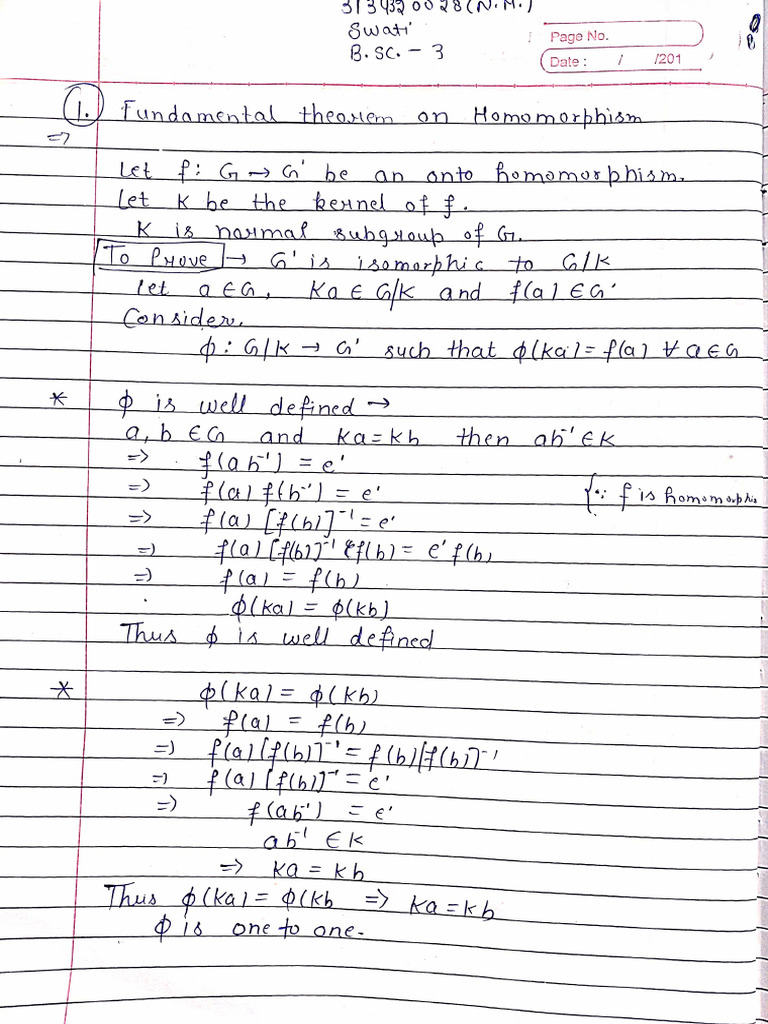 313432 0028 (N.M.)
Swati
B.Sc. - 3
Page No.
Date : / /201
1. Fundamental theorem on Homomorphism
=>
Let f: G → G' be an onto homomorphism.
Let K be the kernel of f.
K is normal subgroup of G.
To Prove → G' is isomorphic to G/K
Let a ∈ G, Ka ∈ G/K and f(a) ∈ G'
Consider.
ϕ : G/K → G' such that ϕ(Ka) = f(a) ∀ a ∈ G
* ϕ is well defined →
a, b ∈ G and Ka = Kb then ab⁻¹ ∈ K
=> f(ab⁻¹) = e'
=> f(a) f(b⁻¹) = e' {∵ f is homomorphis
=> f(a) [f(b)]⁻¹ = e'
=> f(a) [f(b)]⁻¹ f(b) = e' f(b)
=> f(a) = f(b)
ϕ(Ka) = ϕ(Kb)
Thus ϕ is well defined
* ϕ(Ka) = ϕ(Kb)
=> f(a) = f(b)
=> f(a) [f(b)]⁻¹ = f(b) [f(b)]⁻¹
=> f(a) [f(b)]⁻¹ = e'
=> f(ab⁻¹) = e'
ab⁻¹ ∈ K
=> Ka = Kb
Thus ϕ(Ka) = ϕ(Kb => Ka = Kb
ϕ is one to one.